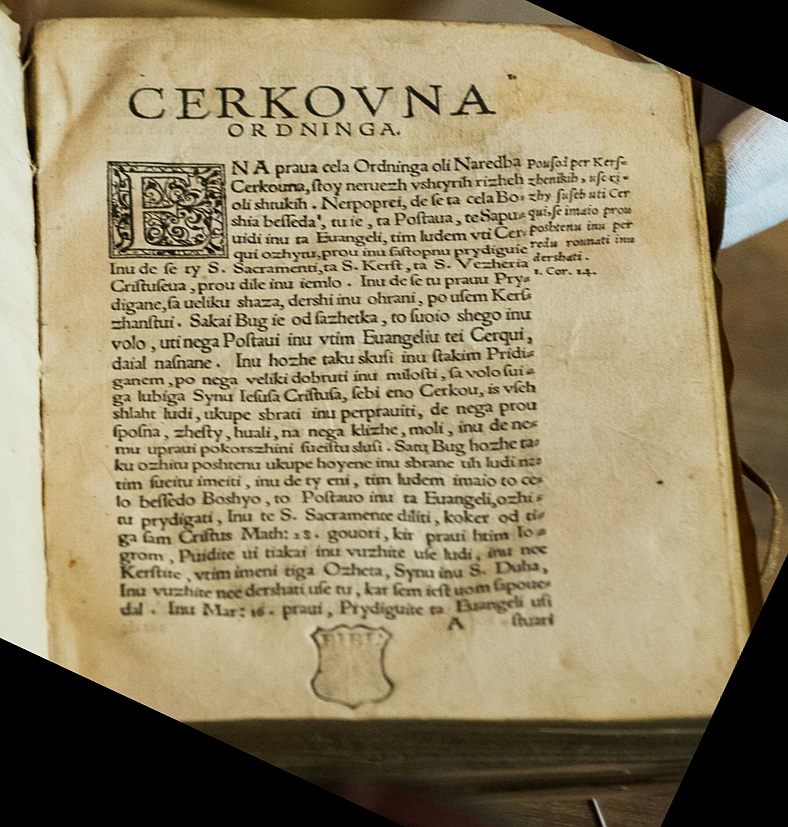 CERKOVNA
ORDNINGA.
ENA praua cela Ordninga oli Naredba
Cerkouna, ſtoy neruezh vshtyrih rizheh
oli shtukih. Nerpoprei, de ſe ta cela Bo-
shia beſſeda, tu ie, ta Poſtaua, te Sapu-
uidi inu ta Euangeli, tim ludem vti Cer-
qui ozhytu, prou inu ſaſtopnu prydiguie
Inu de ſe ty S. Sacramenti, ta S. Kerſt, ta S. Vezheria
Criſtuſeua, prou dile inu iemlo. Inu de ſe tu prauu Pry-
digane, ſa ueliku shaza, dershi inu ohrani, po uſem Kerſ-
zhanſtui. Sakai Bug ie od ſazhetka, to ſuoio shego inu
volo, uti nega Poſtaui inu vtim Euangeliu tei Cerqui,
daial naſnane. Inu hozhe taku skuſi inu ſtakim Pridi-
ganem, po nega veliki dobruti inu miloſti, ſa volo ſui-
ga lubiga Synu Ieſuſa Criſtuſa, ſebi eno Cerkou, is vſeh
shlaht ludi, ukupe sbrati inu perprauiti, de nega prou
ſpoſna, zheſty, huali, na nega klizhe, moli, inu de ne-
mu upraui pokorszhini ſueiſtu sluſi. Satu Bug hozhe ta-
ku ozhitu poshtenu ukupe hoyene inu sbrane uh ludi na-
tim ſueitu imeiti, inu de ty eni, tim ludem imaio to ce-
lo beſſedo Boshyo, to Poſtauo inu ta Euangeli, ozhi-
tu prydigati, Inu te S. Sacramente diliti, koker od ti-
ga ſam Criſtus Math: 28. gouori, kir praui htim Io-
grom, Puidite ui tiakai inu vuzhite uſe ludi, inu nee
Kerſtite, vtim imeni tiga Ozheta, Synu inu S. Duha,
Inu vuzhite nee dershati uſe tu, kar ſem ieſt uom ſapoue-
dal. Inu Mar: 16. praui, Prydiguite ta Euangeli uſi
A ſtuari
Pouſod per Kerſ-
zhenikih, uſe ri-
zhy ſuſeb uti Cer
qui, ſe imaio prou
poshtenu inu per
redu rounati inu
dershati.
1. Cor. 14.